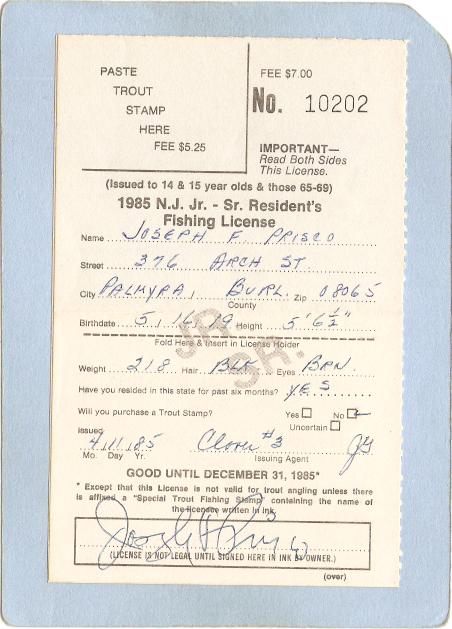 PASTE
TROUT
STAMP
HERE
FEE $5.25
FEE $7.00
No. 10202
IMPORTANT—
Read Both Sides
This License.
(Issued to 14 & 15 year olds & those 65-69)
1985 N.J. Jr. - Sr. Resident's
Fishing License
Name JOSEPH F. PRISCO
Street 376 ARCH ST.
City PALMYRA, BURL. Zip 08065
County
Birthdate 5, 16, 19 Height 5' 6 1/2"
JR
SR.
Fold Here & Insert in License Holder
Weight 218 Hair BLK Eyes BRN.
Have you resided in this state for past six months? YES
Will you purchase a Trout Stamp? Yes No
Uncertain
Issued
4, 11, 85 Clover #3
Mo. Day Yr. Issuing Agent
GOOD UNTIL DECEMBER 31, 1985*
* Except that this License is not valid for trout angling unless there
is affixed a "Special Trout Fishing Stamp" containing the name of
the licensee written in ink.
(LICENSE IS NOT LEGAL UNTIL SIGNED HERE IN INK BY OWNER.)
(over)